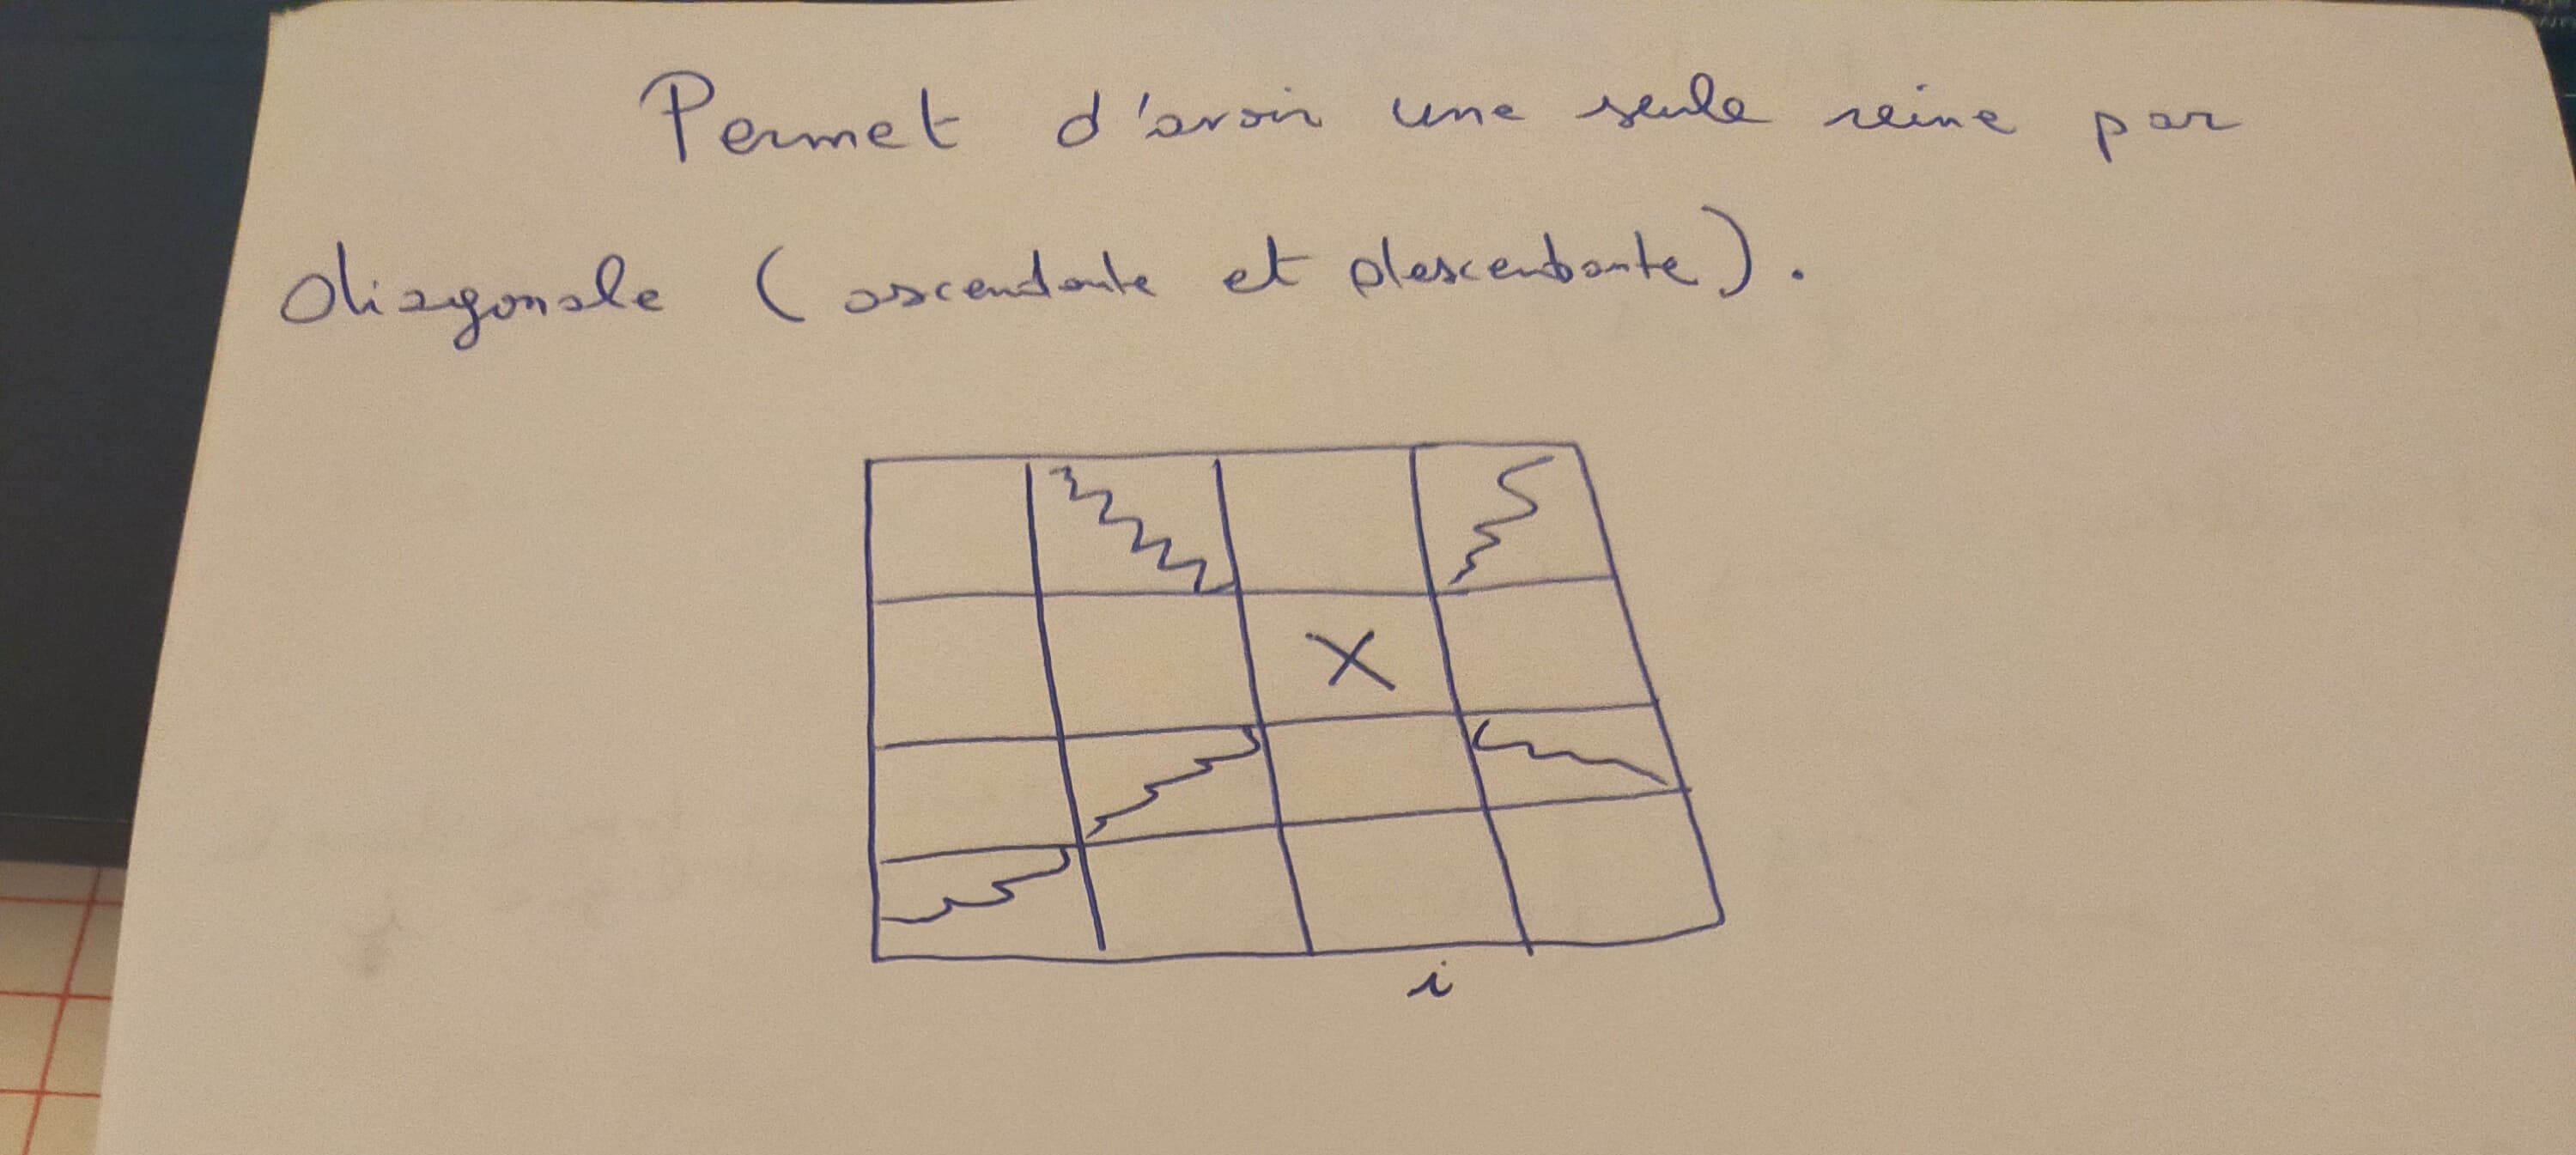 Permet d'avoir une seule reine par
diagonale (ascendante et descendante).
X
i